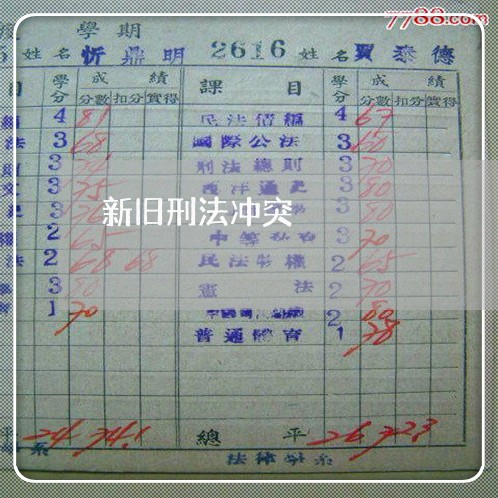 7788.com
學期
姓名 忻鼎明 2616 姓名 賈泰德
目 學分 成績 課目 學分 成績
分數 扣分 實得 分數 扣分 實得
4 81 民法債編 4 67
法 3 68 國際公法 3 60
3 刑法總則 3 70
3 75 西洋通史 3 80
3 80
新旧刑法冲突
權 2 65 3 70
法 2 68 68 民法物權 2 65
3 80 憲法 2 70
1 70 2 80
普通體育 1 78
平 24 74.1 總平 26 72.3
系 法律學系